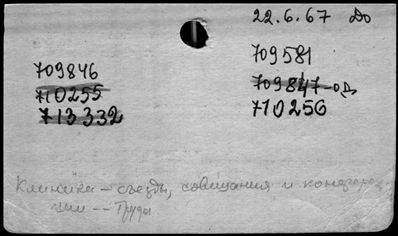 22.6.67 До
709581
709846
709847-од
710255
710256
713332
Клиника – съезды, совещания и конферен
ции -- Труды